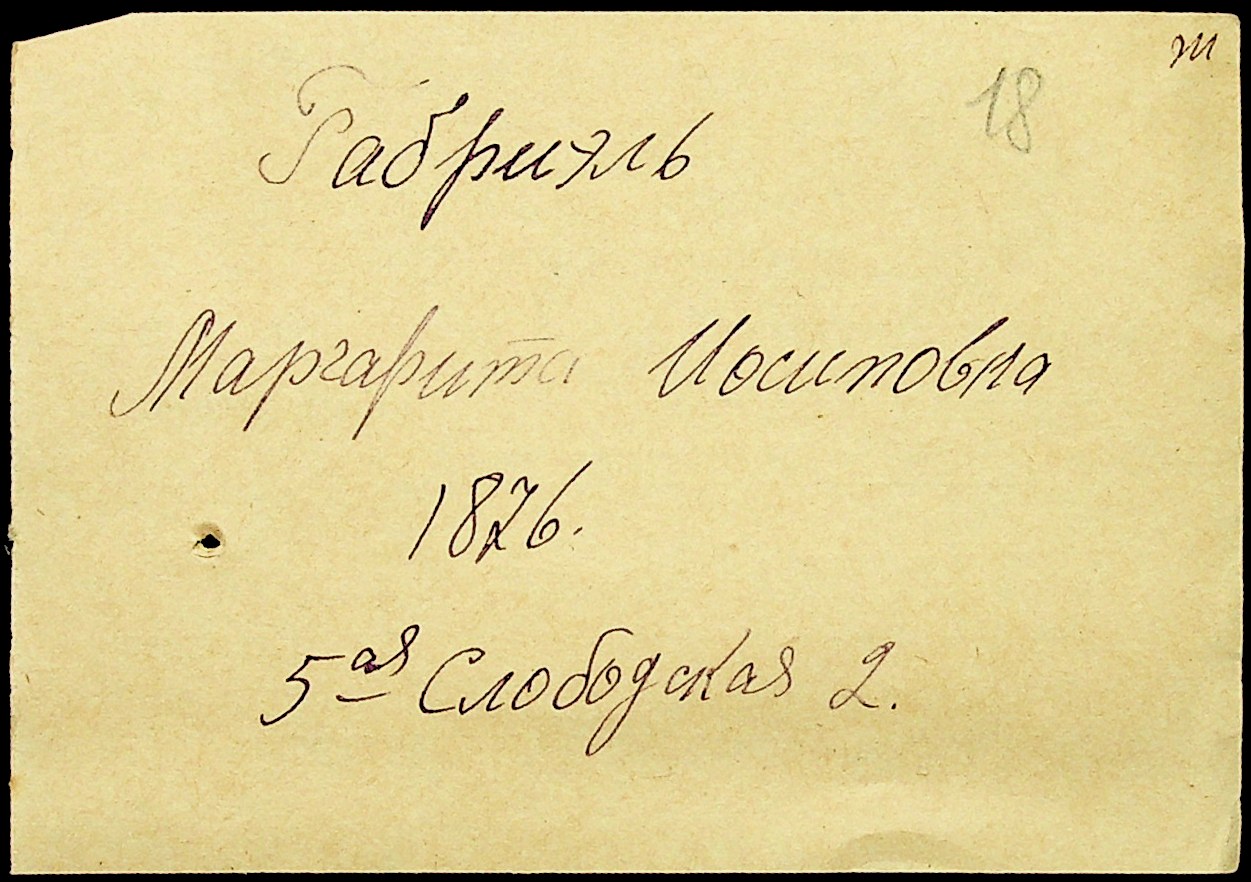 т
18
Габриэль
Маргарита Иосиповна
1876.
5ая Слободская 2.